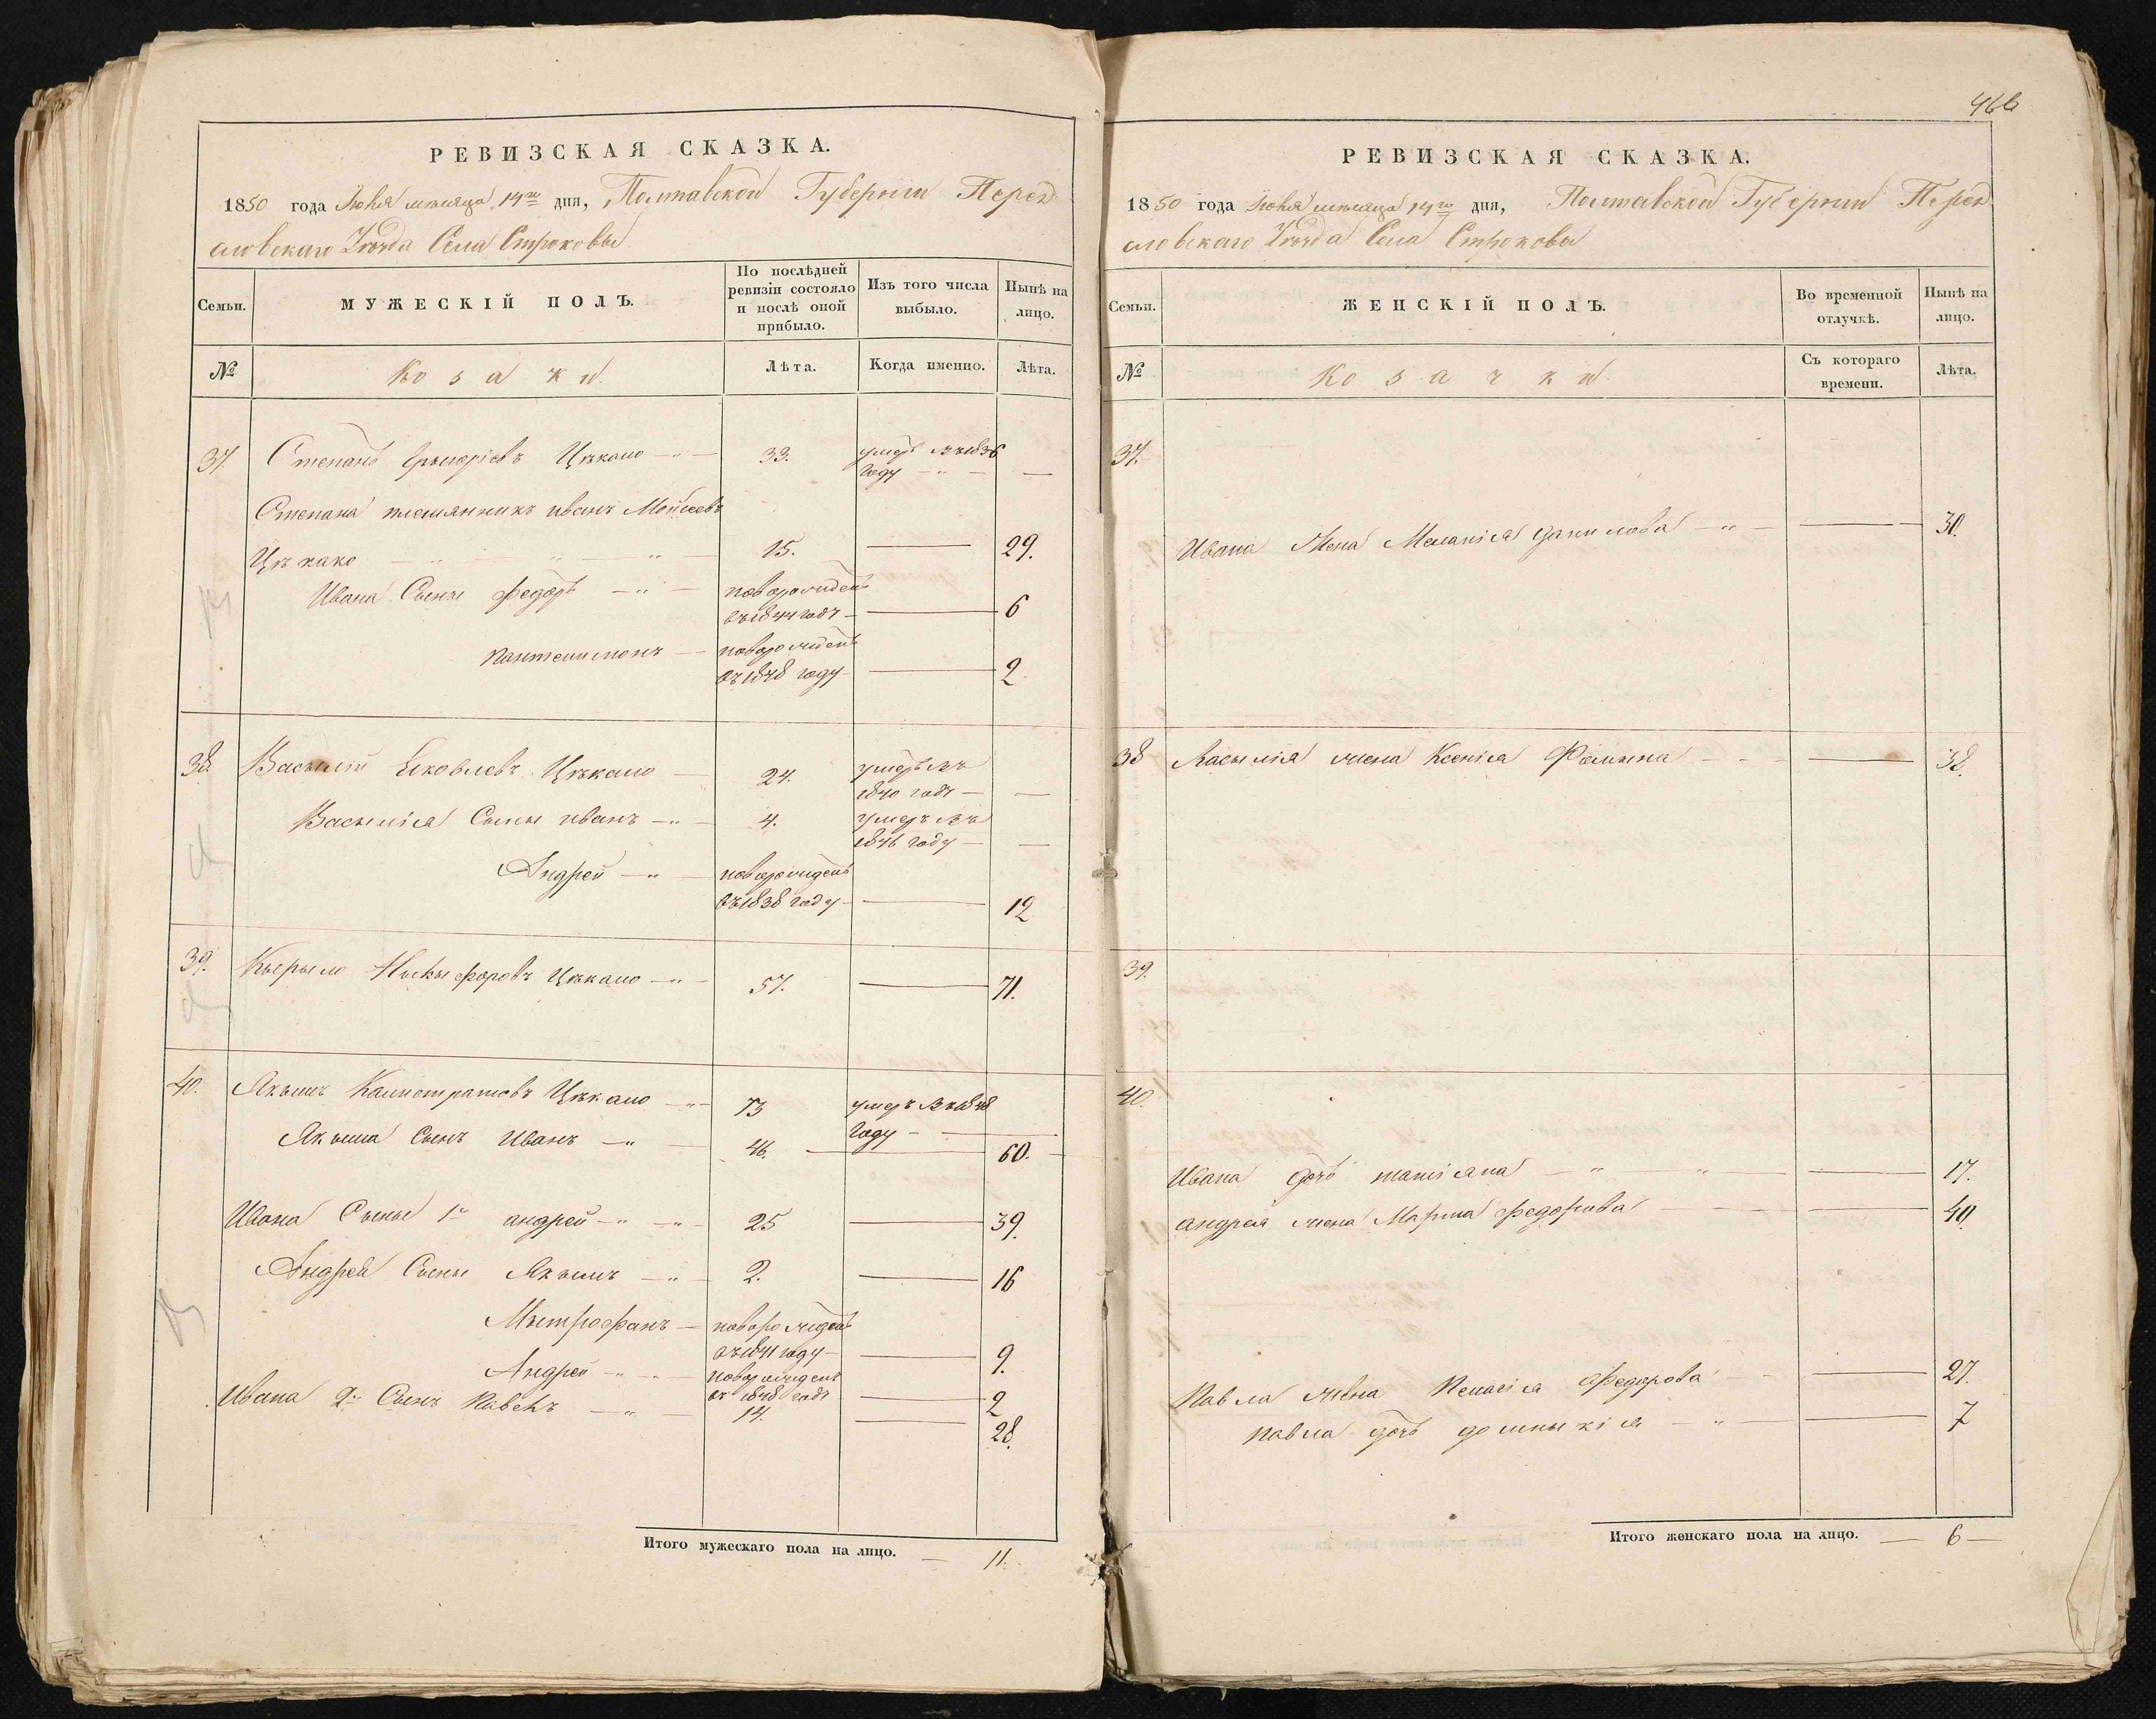 РЕВИЗСКАЯ СКАЗКА.
1850 года Июня месяца 14го дня, Полтавской Губернии Перея
словскаго Уезда Села Строковы
Семьи. МУЖЕСКІЙ ПОЛЪ. По послѣдней ревизіи состояло и послѣ оной прибыло. Изъ того числа выбыло. Нынѣ на лицо.
№ Козаки. Лѣта. Когда именно. Лѣта.
37. Степанъ Грыгоріевъ Цѣкало 33. умеръ въ 1836 году —
Степана племянникъ иванъ Мойсеевъ
Цѣкало 15. — 29.
Ивана Сыны Федоръ новорожденъ въ 1844 годѣ — 6
Пантелимонъ новорожденъ въ 1848 году — 2.
38. Васылій Яковлевъ Цѣкало 24. умеръ въ 1840 годѣ —
Васыліа Сыны иванъ 4. умеръ въ 1846 году —
Андрей новорожденъ въ 1838 году — 12
39. Кырыло Ныкыфоровъ Цѣкало 57. — 71.
40. Якымъ Калистратовъ Цѣкало 73 умеръ въ 1848 году —
Якыма Сынъ Иванъ 46. — 60.
Ивана Сыны 1й андрей 25 — 39.
Андрея Сыны Якымъ 2. — 16
Мытрофанъ новорожденъ въ 1841 году — 9.
Андрей новорожденъ въ 1848 годѣ — 2
Ивана 2й Сынъ Павелъ 14. — 28.
Итого мужескаго пола на лицо. — 11.
466
РЕВИЗСКАЯ СКАЗКА.
1850 года Июня месяца 14го дня, Полтавской Губернии Перея
словскаго Уезда Села Строковы
Семьи. ЖЕНСКІЙ ПОЛЪ. Во временной отлучкѣ. Нынѣ на лицо.
№ Козачки. Съ котораго времени. Лѣта.
37.
Ивана Жена Меланіа Данилова — 30.
38 Васыліа жена Ксеніа Фомина — 38.
39.
40.
Ивана дочь — 17.
андрея жена Марина Федорова — 40.
Павла жена Пелагіа Федорова — 27.
павла дочь домныкіа — 7
Итого женскаго пола на лицо. — 6 —